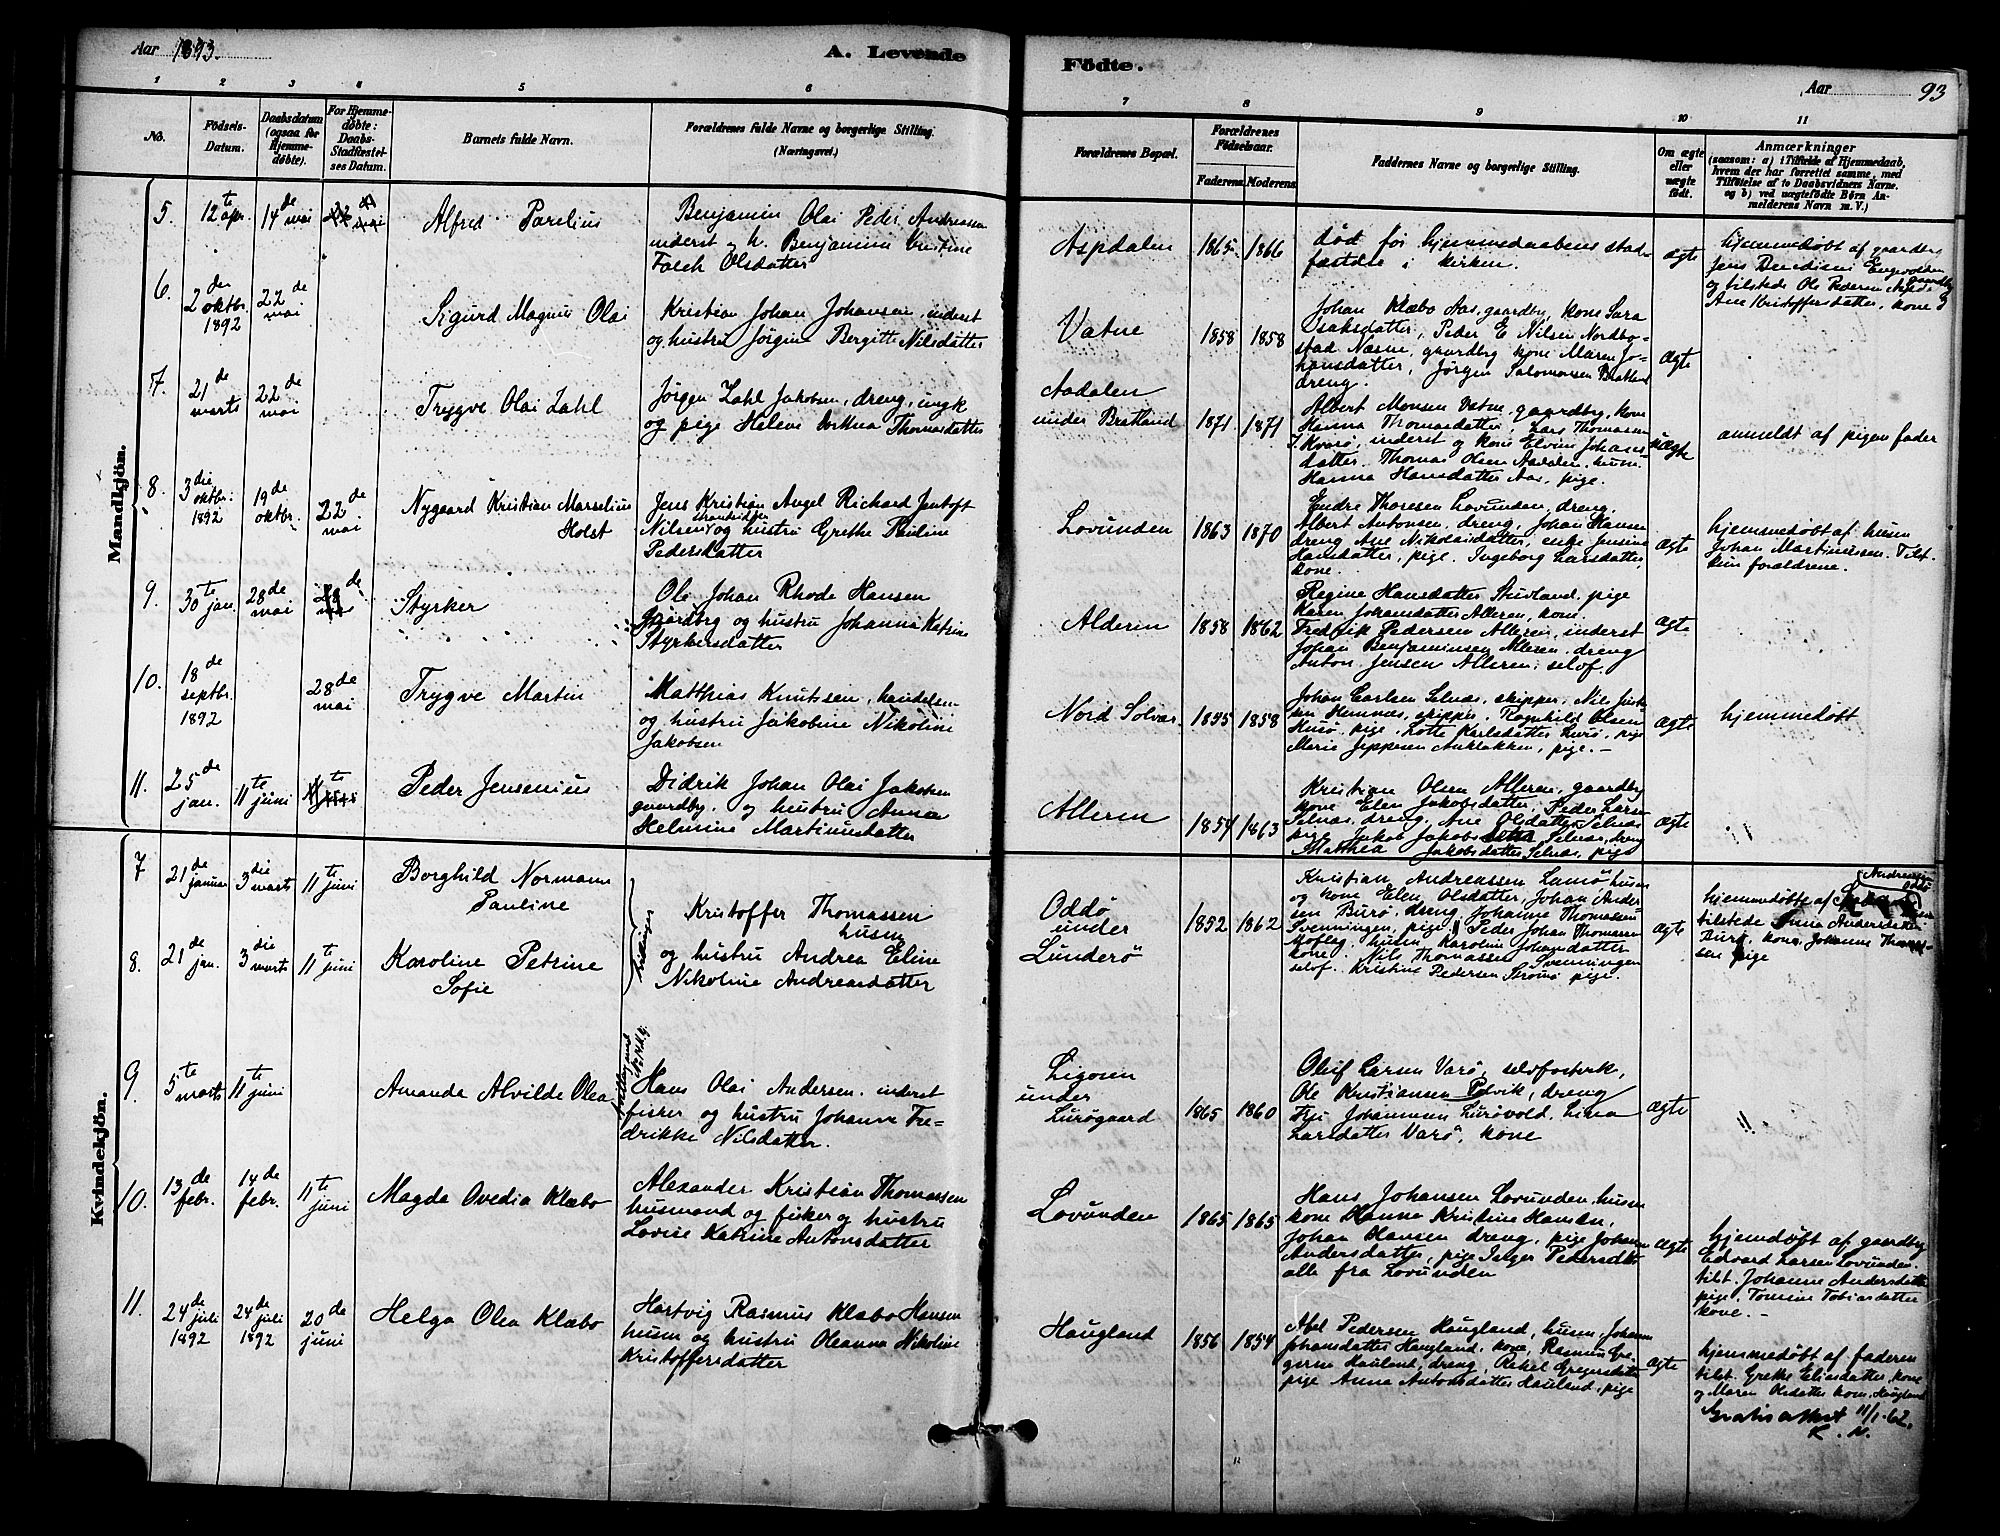 Aar 1893.
A. Levende
Födte.
Aar
93
1 2 3 4 5 6
7 8 9 10 11
No.
Födsels-
Datum.
Daabsdatum
(ogsaa for
Hjemme-
døbte).
For Hjemme-
døbte:
Daabs-
Stadfæstel-
ses Datum.
Barnets fulde Navn.
Forældrenes fulde Navne og borgerlige Stilling.
(Næringsvei.)
Forældrenes Bopæl.
Forældrenes
Födselsaar.
Faderens.
Moderens.
Faddernes Navne og borgerlige Stilling.
Om ægte
eller
uægte
födt.
Anmærkninger
(saasom: a) i Tilfælde af Hjemmedaab,
hvem der har forrettet samme, med
Tilföielse af to Daabsvidners Navne.
og b) ved uægtefödte Börn An-
melderens Navn m. V.)
Mandkjön.
5.
12te apr.
14de mai
Alfred Parelius
Benjamin Olai Peder Andreassen
inderst og h. Benjamine Kristine
Falch Olsdatter
Aspdalen
1865. 1866
død før hjemmedaabens stad-
fæstelse i kirken.
ægte
hjemmedøbt af gaardbr
6.
2den
oktbr.
1892
22de
mai
Sigurd Magnus Olai
Kristian Johan Johansen, inderst
og hustru Jørgine Bergitte Nilsdatter
Vatne
1858 1858
Johan Klæbo Aas, gaardbr, kone Sara
Isaksdatter, Peder E Nilsen Nordbo-
stad Næsne, gaardbr kone Maren Jo-
hansdatter, Jørgen Salomonsen Bratland
dreng.
ægte
Ane Kristoffersdatter, kone
7.
21de
marts
22de
mai
Trygve Olai Zahl
Jørgen Zahl Jakobsen, dreng, ungk
og pige Helene Thomasdatter
Aadalen
under Bratland
1871 1871
Albert Monsen Vatne, gaardbr, kone
Hanna Thomasdatter, Lars Thomassen
Kvarø, inderst og kone Elvine Johans-
datter. Thomas Olsen Aadalen, husm.
Hanna Hansdatter Aas, pige.
uægte
anmeldt af pigens fader
8.
3die
oktbr.
1892
19de
oktbr.
22de
mai
Nygaard Kristian Marselius
Holst
Jens Kristian Angel Richard Jentoft
Nilsen strandsidder og hustru Grethe Pauline
Pedersdatter
Lovunden
1863 1870
Endre Thoresen Lovunden, dreng.
Albert Antonsen, dreng, Johan Hansen
dreng Ane Nikolaisdatter, enke Jensine
Hansdatter, pige, Ingeborg Larsdatter
kone.
ægte
hjemmedøbt af husm
Johan Martinussen. Tilst.
kun forældrene.
9.
30te jan.
28de
mai
Styrker
Ole Johan Rhode Hansen
gaardbrg og hustru Johanna Katrine
Styrkersdatter
Alderen
1858 1862
Regine Hansdatter Stuvland, pige
Karen Johansdatter Alleren, kone.
Fredrik Pedersen Alleren, inderst
Johan Benjaminsen Alleren, dreng
Anton Jensen Alleren, selvf.
ægte
10.
18de
septbr.
1892
28de
mai
Trygve Martin
Matthias Knutssen, handelsm
og hustru Jakobine Nikoline
Jakobsen
Nord Solvær
1855 1858
Johan Carlsen Selnæs, skipper, Nils Just-
sen Hemnæs, skipper, Ragnhild Olsen
Husø, pige, Lotte Karlsdatter Lurø, pige
Marie Jeppesen, pige.
ægte
hjemmedøbt
11.
25de
jan.
11te
juni
Peder Jensenius
Didrik Johan Olai Jakobsen
gaardbr. og hustru Anna
Helmine Martinusdatter
Alleren
1854 1863
Kristian Olsen Alleren, gaardbr
kone Elen Jakobsdatter, Peder Larsen
Selnæs, dreng, Ane Olsdatter Selnæs
pige, Jakob Selnæs, dreng
Matthea Jakobsdatter Selnæs, pige
ægte
Kvindekjön.
7
21de
januar
3die
marts
11te
juni
Borghild Normann
Pauline
tvillinger
Kristoffer Thomassen
husm
og hustru Andrea Eline
Nikoline Andreasdatter
Oddø
under
Lunderø
1852 1862
Kristian Andreassen Lamø husm
og kone Elen Olsdatter, Johan Ander-
sen Burø, dreng, Johanne Thomassen
Svenningen, pige, Peder Johan Thomassen
husm. Karoline Johansdatter
kone. Nils Thomassen Svenningen
selvf. Kristine Pedersen Strømø pige.
ægte
hjemmedøbte af
tilstede
Burø, kone, Johanne Thomas-
sen pige
8.
21de
jan.
3die
marts
11te
juni
Karoline Petrine
Sofie
9.
5te
marts
11te
juni
Amanda Alvilde Olea
Hans Olai Andersen, inderst
fisker og hustru Johanne Fre-
drikke Nilsdatter.
Ligosen
under
Lurøgaard
1865 1860
Oluf Larsen Varø, selvforsørk,
Ole Kristiansen Solvik, dreng
Fru Johannesen Lurøvold, Lina
Larsdatter Varø, kone
ægte
10.
13de
febr.
14de
febr.
11te
juni
Magda Ovedia Klæbo
Alexander Kristian Thomassen
husmand og fisker og hustru
Lovise Katrine Antonsdatter
Lovunden
1865 1865
Hans Johansen Lovunden, husm
kone Hanna Kristine Hansen,
Johan Olausen dreng, pige Johan
Andersdatter, pige Inger Pedersdtr
alle fra Lovunden
ægte
hjemdøbt af gaardbr
Edvard Larsen Lovunden.
tilst. Johanne Andersdatter
pige, Tomine Tobiasdatter
kone.
11.
24de
juli
1892
24de
juli
1892
20de
juni
Helga Olea Klæbo
Hartvig Rasmus Klæbo Hansen
husm og hustru Oleanna Nikoline
Kristoffersdatter
Haugland
1856 1854
Abel Pedersen Haugland, husm, Johanne
Johansdatter Haugland, kone, Rasmus Gre-
gersen Hauland, dreng, Rakel Gregersdatter
pige Anna Antonsdatter Hauland, pige
ægte
hjemmedøbt af faderen
tilst. Grethe Eliasdatter, kone
og Maren Olsdatter kone, Haugland
Gratis attest 11/1-62.
K. N.